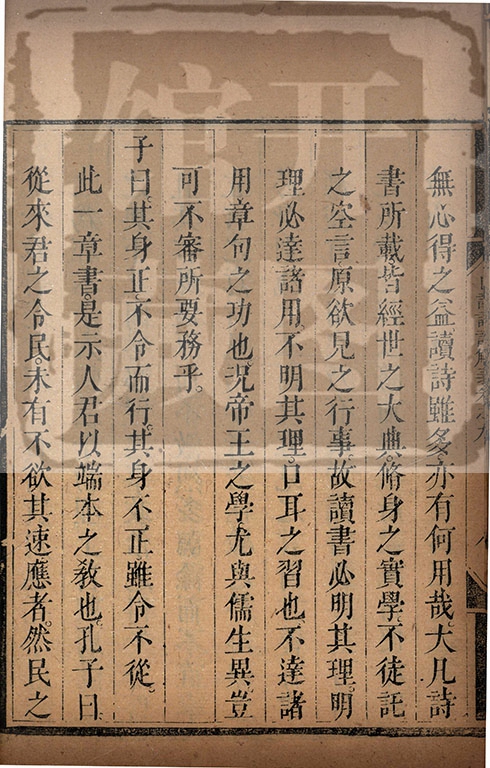 無心得之益讀詩雖多亦有何用哉大凡詩
書所載皆經世之大典脩身之實學不徒託
之空言原欲見之行事故讀書必明其理明
理必達諸用不明其理口耳之習也不達諸
用章句之功也況帝王之學尤與儒生異豈
可不審所要務乎。
子曰其身正不令而行其身不正雖令不從。
此一章書是示人君以端本之教也孔子曰
從來君之令民未有不欲其速應者然民之